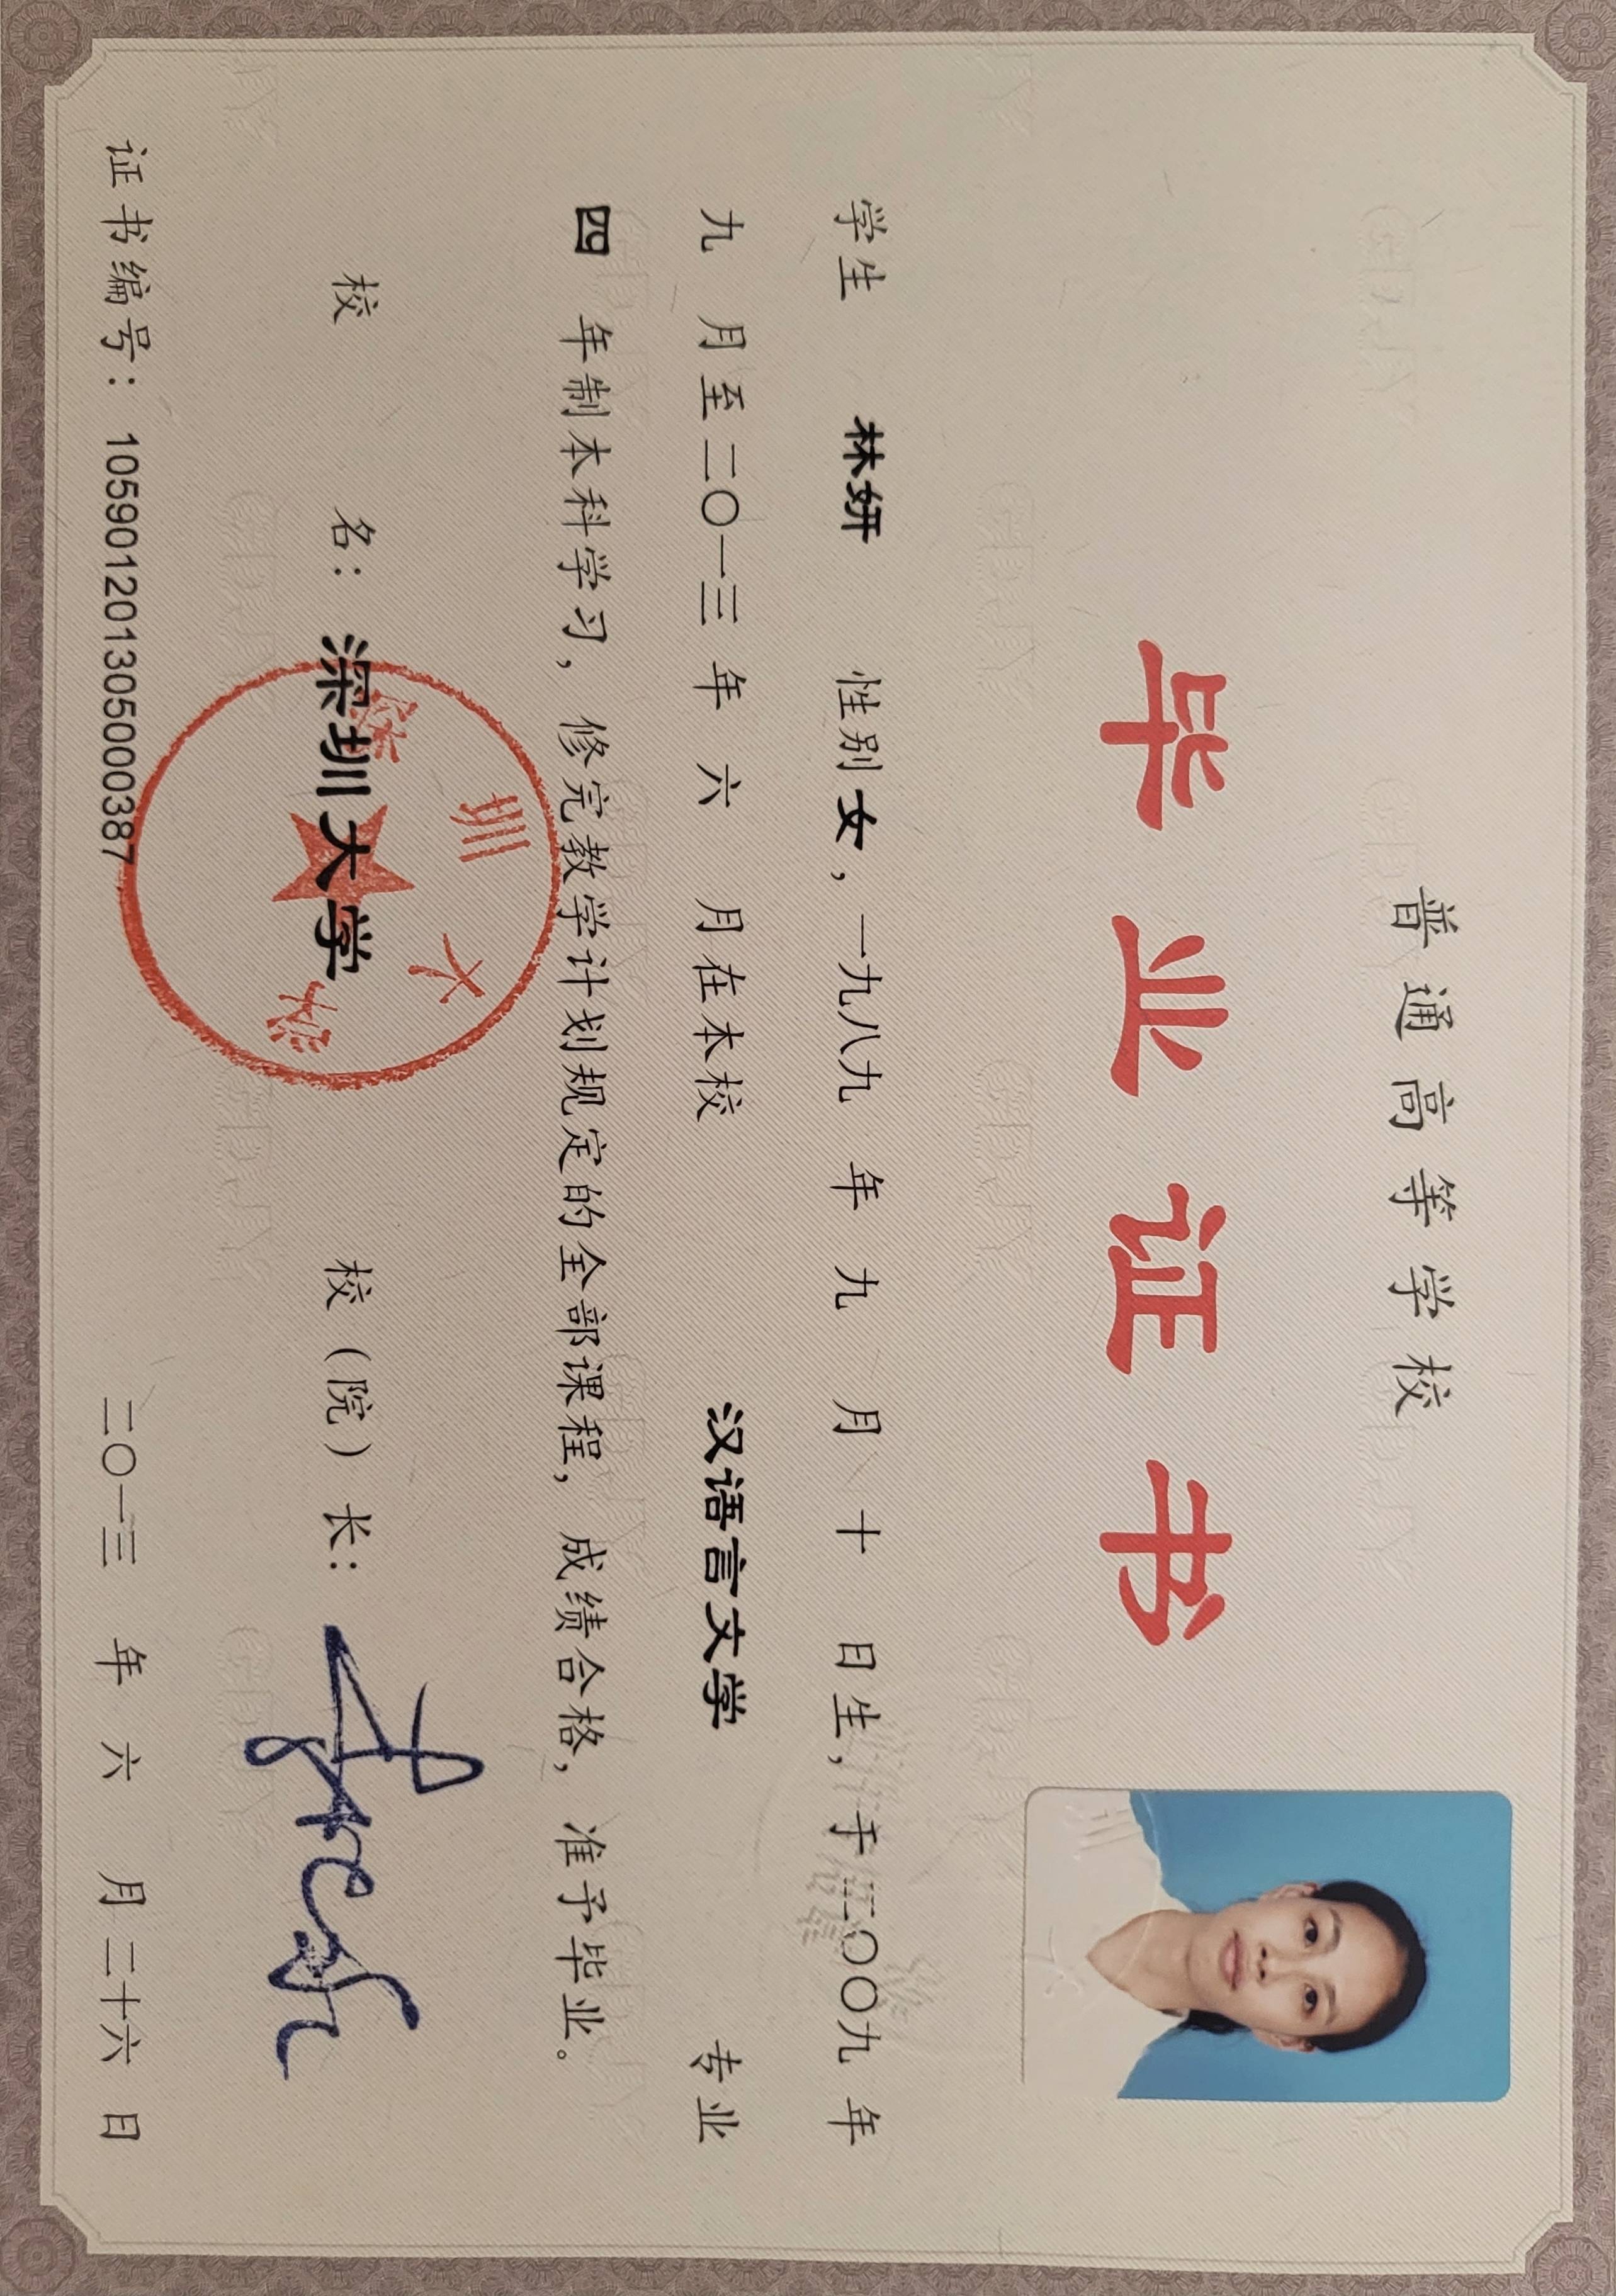 普通高等学校
毕业证书
学生 林妍 性别 女，一九八九 年 九 月 十 日生，于二〇〇九 年
九 月至二〇一三 年 六 月在本校 汉语言文学 专业
四 年制本科学习，修完教学计划规定的全部课程，成绩合格，准予毕业。
校 名：深圳大学 校（院）长：
深圳大学
证书编号：105901201305000387 二〇一三 年 六 月二十六 日